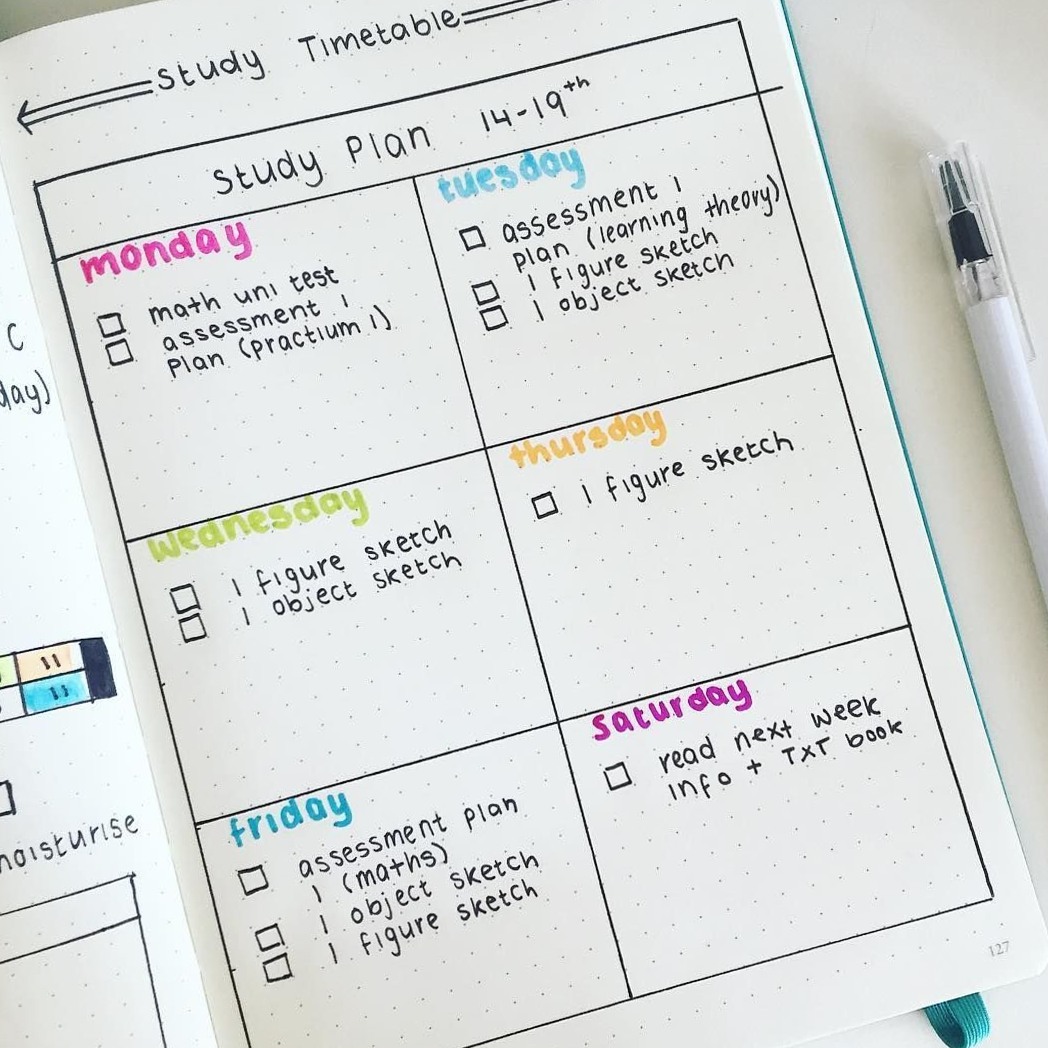 Study Timetable
Study Plan 14-19th
monday
math uni test
assessment 1
Plan (practium 1)
tuesday
assessment 1
plan (learning theory)
1 figure sketch
1 object sketch
wednesday
1 figure sketch
1 object sketch
thursday
1 figure sketch
friday
assessment plan
1 (maths)
1 object sketch
1 figure sketch
saturday
read next week
info + TXT book
127
C
day)
11
11
moisturise